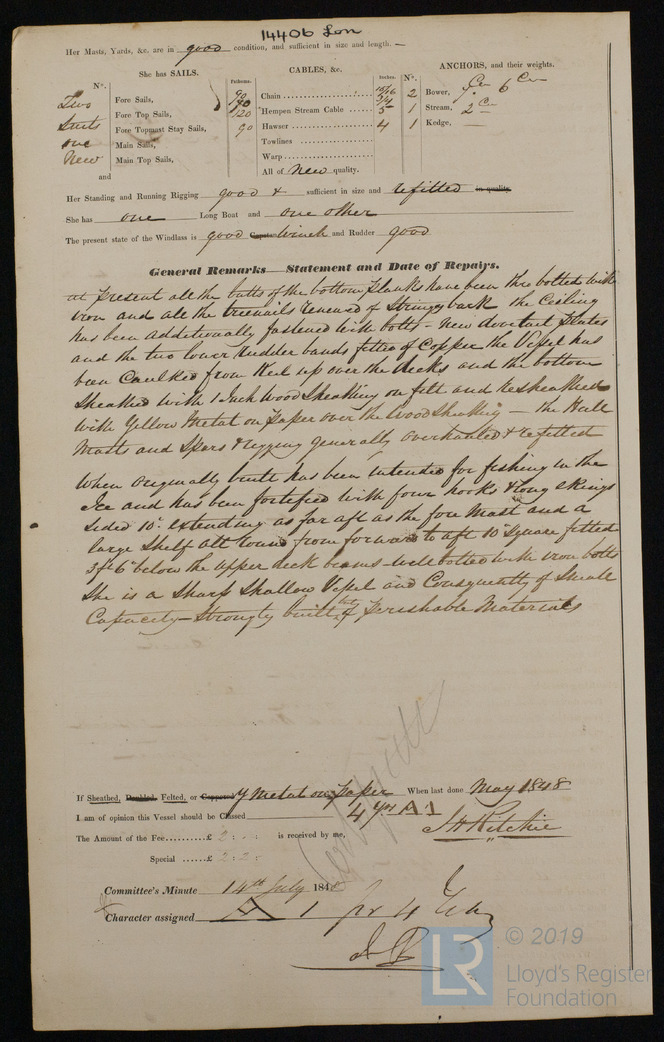 14406 Lon
Her Masts, Yards, &c. are in good condition, and sufficient in size and length.
She has SAILS.
CABLES, &c.
ANCHORS, and their weights.
N°.
Fathoms.
Inches.
N°.
Two Suits one New
Fore Sails,
Fore Top Sails,
Fore Topmast Stay Sails,
Main Sails,
Main Top Sails,
and
90 Chain 15/16
90 3/4
120 Hempen Stream Cable 5
90 Hawser 4
Towlines
Warp
All of New quality.
2 Bower, 6 Cwt
1 Stream, 2 Cwt
1 Kedge, —
Her Standing and Running Rigging good & sufficient in size and refitted in quality.
She has one Long Boat and one other
The present state of the Windlass is good Capstan Winch and Rudder good
General Remarks—Statement and Date of Repairs.
at present all the butts of the bottom planks have been thro bolted with
iron and all the treenails renewed of Stringy bark the Ceiling
has been additionally fastened with bolts - New dovetail plates
and the two lower rudder bands fitted of Copper the Vessel has
been Caulked from Keel up over the decks and the bottom
Sheathed with 1 Inch Wood Sheathing on felt and resheathed
with Yellow Metal on paper over the Wood Sheathing — the Hull
Masts and Spars & rigging generally overhauled & refitted
When originally built has been intended for fishing in the
Ice and has been fortified with four hooks & long ekings
sided 10in. extending as far aft as the fore Mast and a
large Shelf all round from forward to aft 10in Square fitted
3ft 6in below the upper deck beams - well bolted with iron bolts
She is a Sharp Shallow Vessel and Consequently of Small
Capacity - Strongly built but of perishable Materials
If Sheathed, Doubled, Felted, or Coppered Y Metal on Paper When last done May 1848
I am of opinion this Vessel should be Classed 4 yrs A 1
The Amount of the Fee £ 2 : - : - is received by me, J H Ritchie
Special £ 2 : 2 : -
Committee's Minute 14th July 1848
Character assigned A 1 for 4 Yrs
© 2019
LR
Lloyd's Register
Foundation